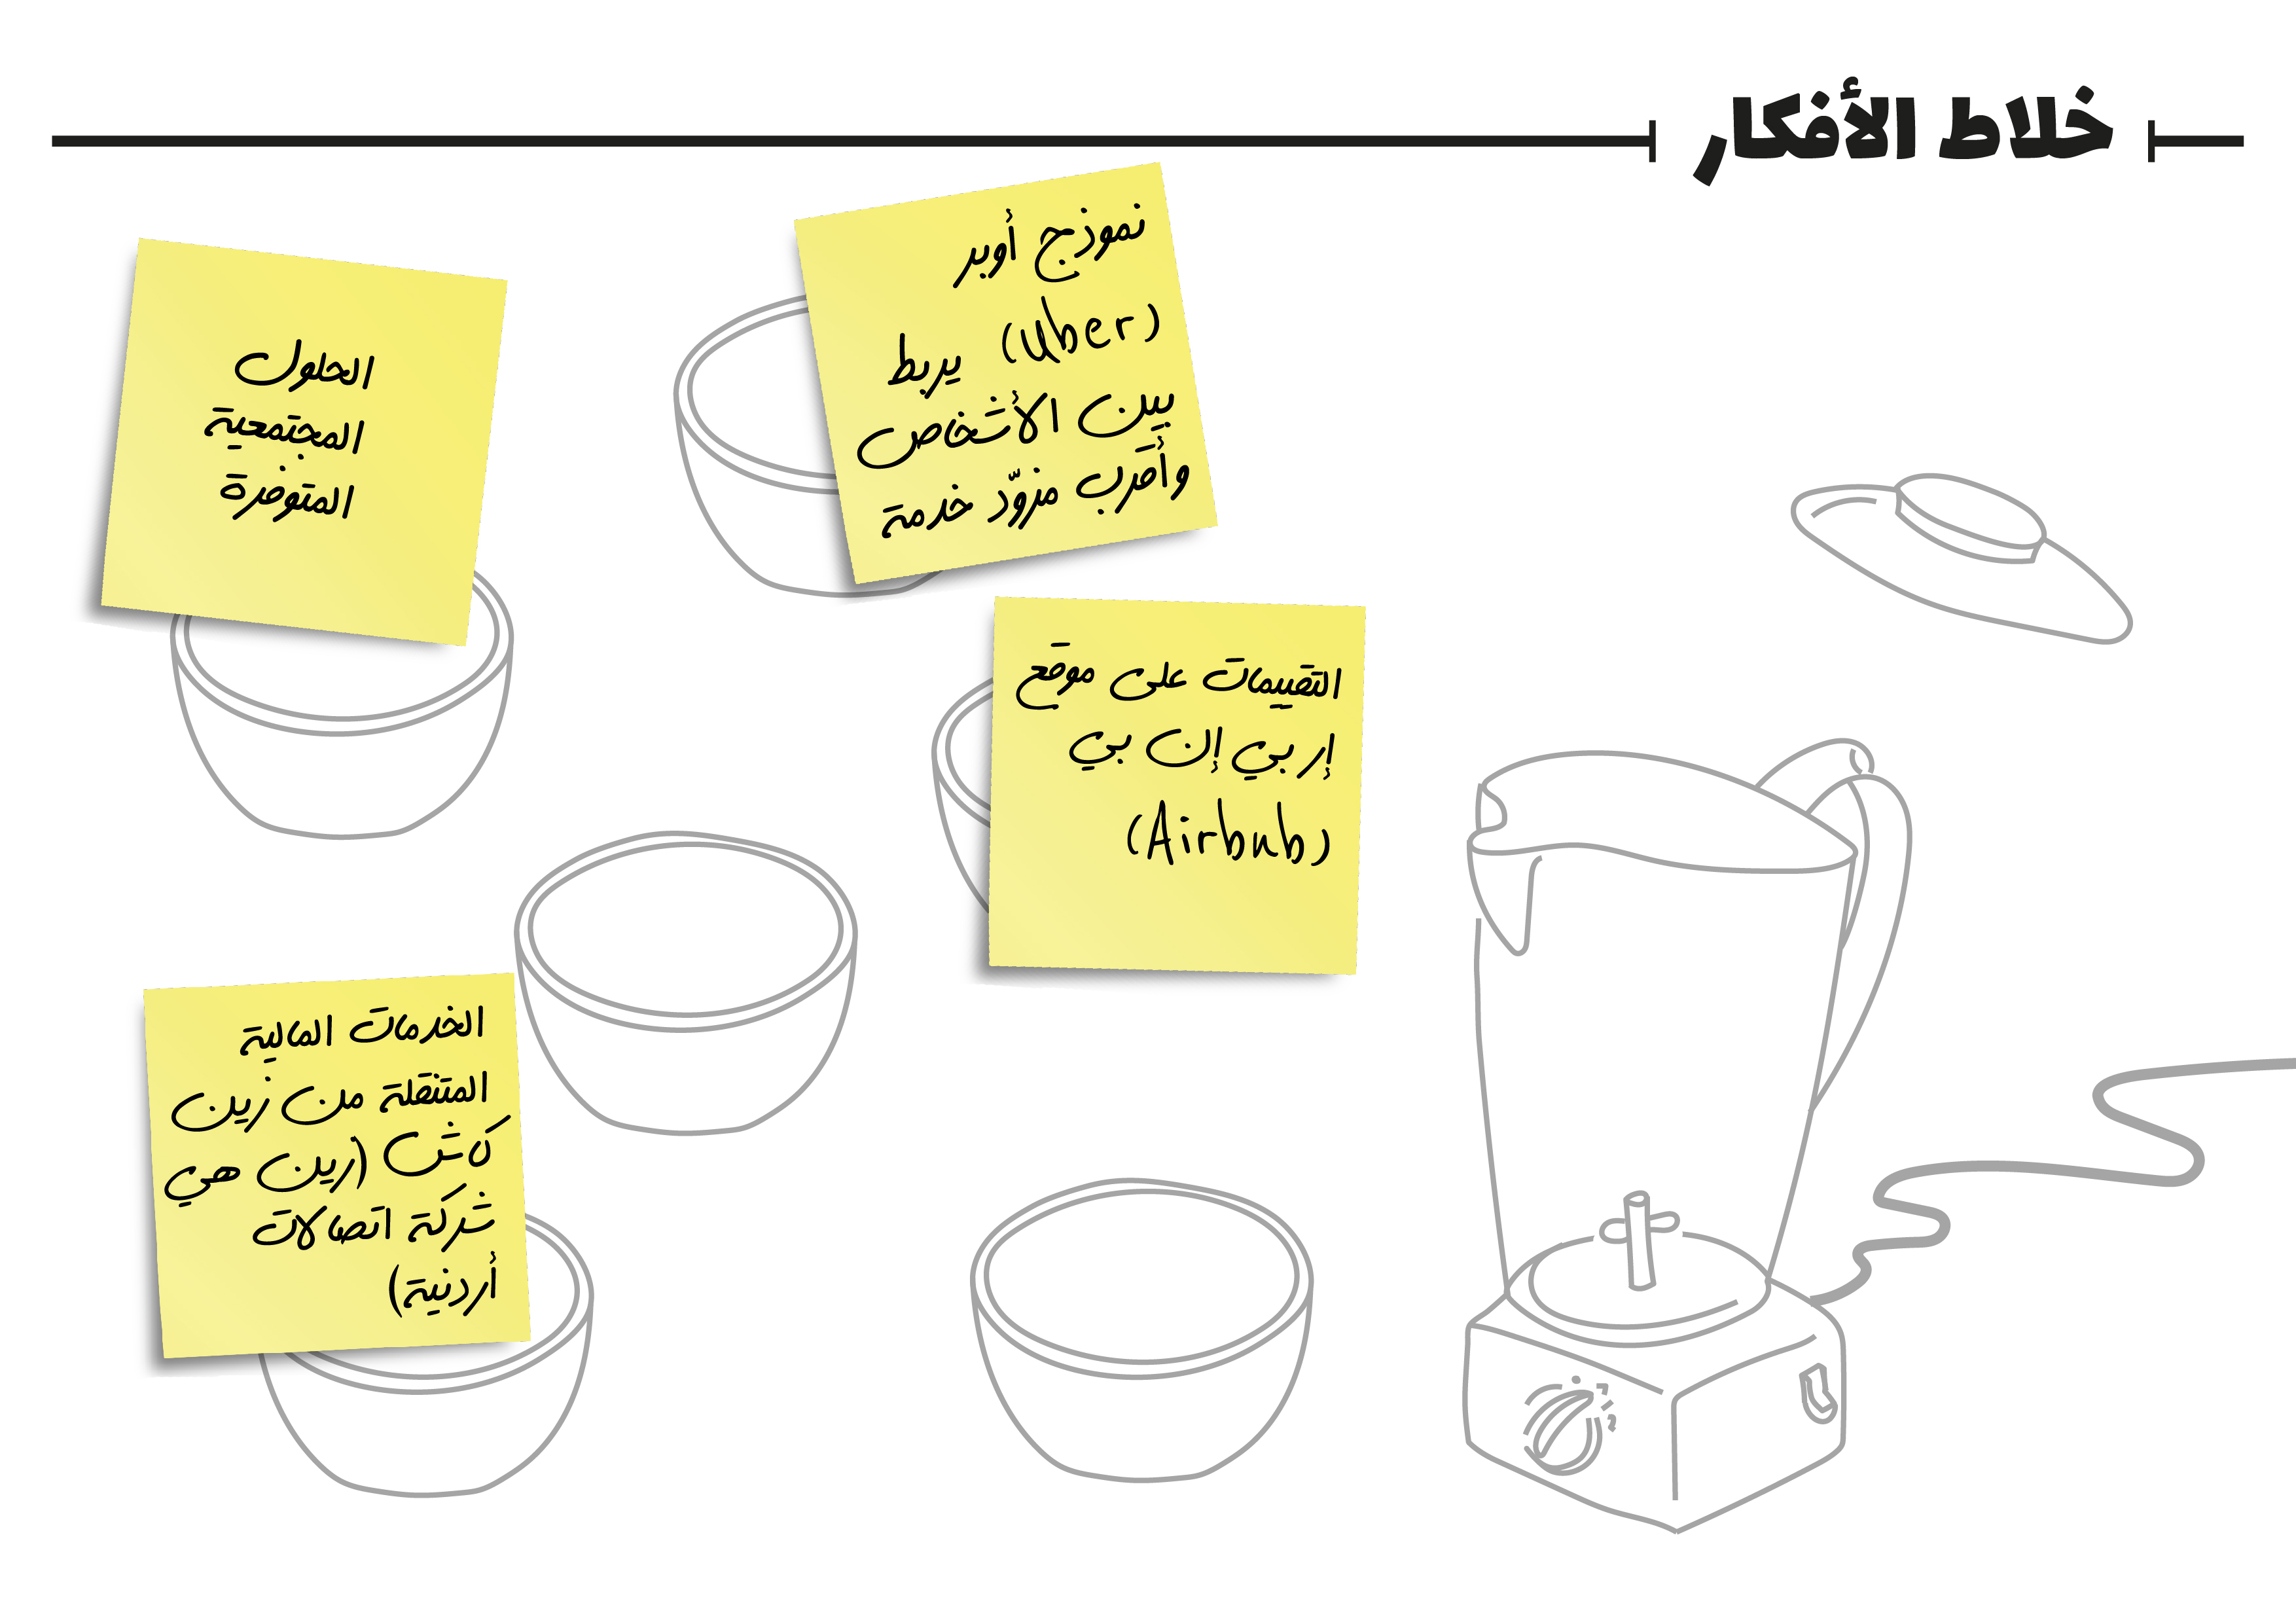 خلاط الأفكار
نموذج أوبر
(Uber) يربط
بين الأشخاص
وأقرب مزوّد خدمة
الحلول
المجتمعية
المتوفرة
التقييمات على موقع
إر بي إن بي
(Airbnb)
الخدمات المالية
المتنقلة من زين
كاش (زين هي
شركة اتصالات
أردنية)